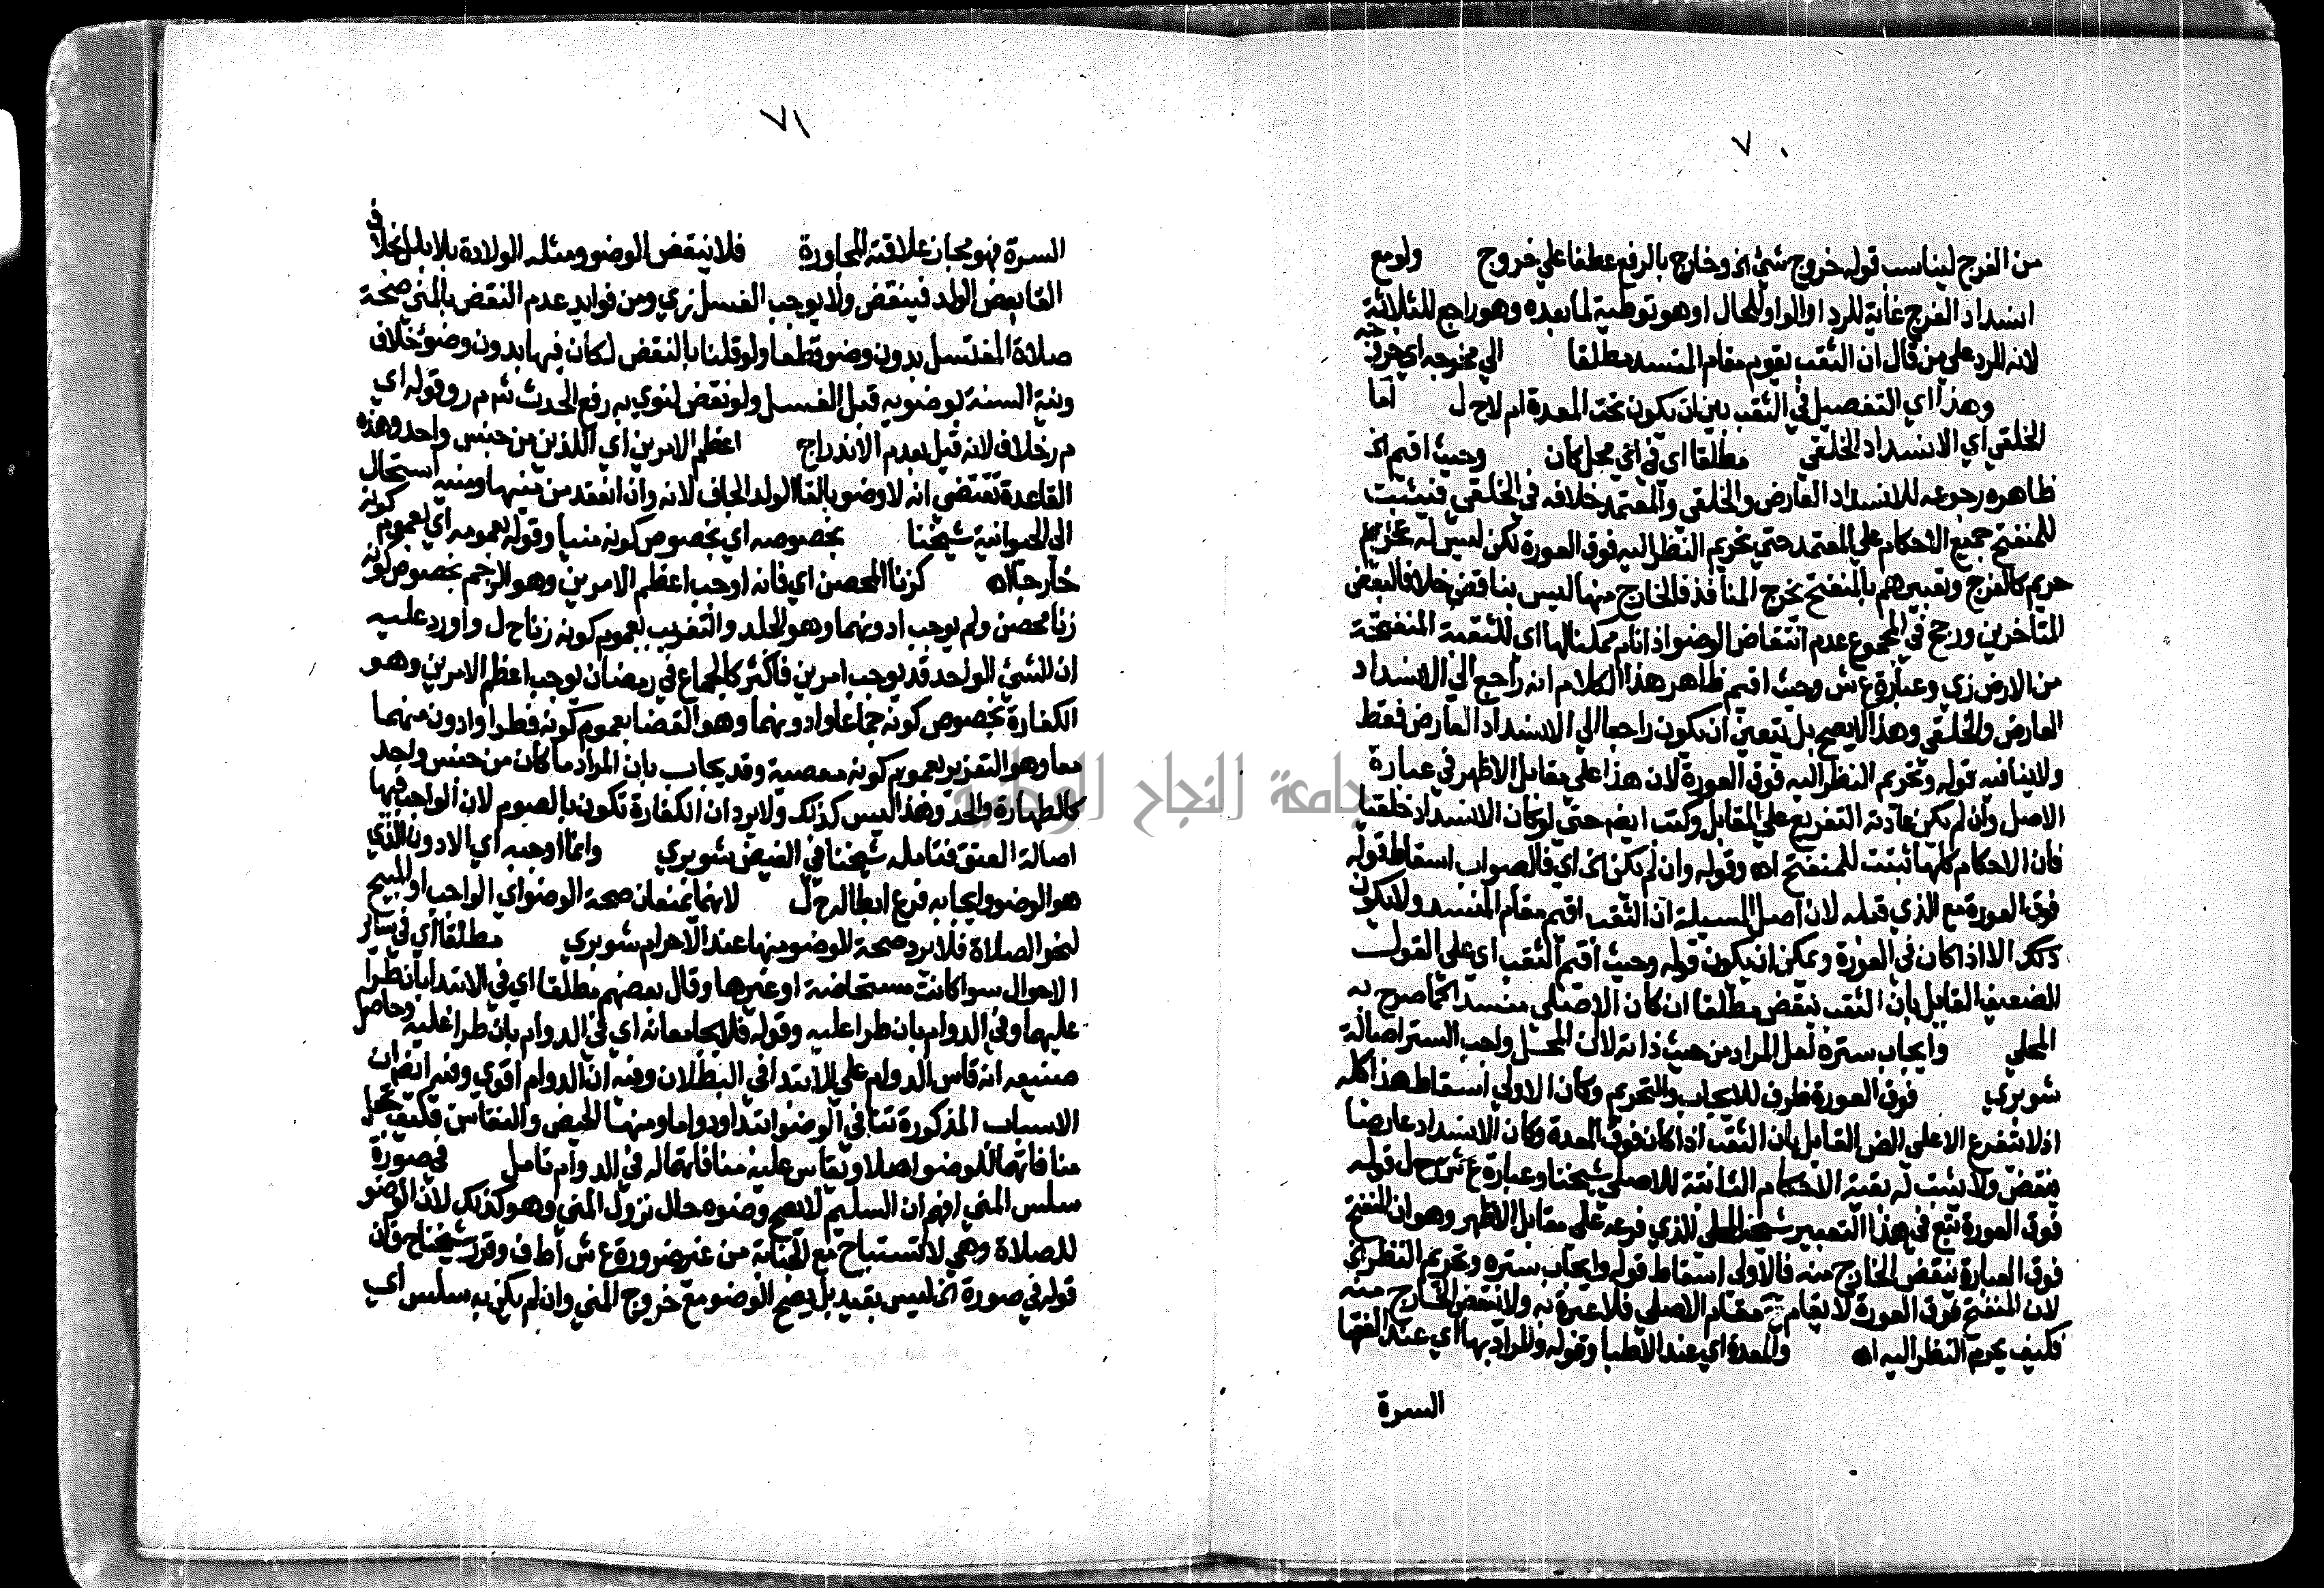 ٧٠
من الفرج ليناسب قوله خروج شئ الخ وخارج بالرفع عطفا علي خروج ولو مع
انسداد الفرج غاية للرد او الواو للحال او هو توطية لما بعده وهو راجع للثلاثة
لانه للرد علي من قال ان الثقب يقوم مقام المنسد مطلقا الي مخرجه اي خرق
وهذا اي التفصيل في الثقب بين ان يكون تحت المعدة ام لا ح ل اما
الخلقي اي الانسداد الخلقي مطلقا اي في اي محل كان وحيث اقيم الخ
ظاهره رجوعه للانسداد العارض والخلقي والمعتمد خلافه في الخلقي فيثبت
للمنفتح جميع الاحكام علي المعتمد حتي تحريم النظر اليه فوق العورة لكن ليس له
حريم كالفرج وتعبيرهم بالمنفتح يخرج المنافذ فالخارج منها ليس بناقض خلافا لبعض
المتاخرين ورجح في المجموع عدم انتقاض الوضو اذا نام ممكنا لها اي للثقبة المنفتحة
من الارض زي وعبارة ع ش وحيث اقيم ظاهر هذا الكلام انه راجع الي الانسداد
العارض والخلقي وهذا لا يصح بل يتعين ان يكون راجعا الي الانسداد العارض فقط
ولاينافيه قوله وتحريم النظر اليه فوق العورة لان هذا علي مقابل الاظهر في عبارة
الاصل وان لم يكن عادته التفريع علي المقابل وكتب ايضا حتي لو كان الانسداد خلقيا
فان الاحكام كلها تثبت للمنفتح اه وقوله وان لم يكن الخ اي فالصواب اسقاط قوله
فوق العورة مع الذي قبله لان اصل المسيلة ان الثقب اقيم مقام المنسد ولايكون
ذلك الا اذا كان في العورة ويمكن ان يكون قوله وحيث اقيم الثقب اي علي القول
الضعيف القايل بان الثقب ينقض مطلقا ان كان الاصلي منسدا كما صرح به
المحلي وايجاب ستره لعل المراد من حيث ذاته لان المحل واجب الستر اصالة
شوبري فوق العورة ظرف للايجاب والتحريم وكان الاولي اسقاط هذا كله
اذ لا يتفرع الا علي الض القايل بان الثقب اذا كان فوق المعدة وكان الانسداد عارضا
ينقض ولايثبت له بقية الاحكام الثابتة للاصلي شيخنا وعبارة ع ش ح ل قوله
فوق العورة تبع في هذا التعبير شيخه المحلي الذي فرعه علي مقابل الاظهر وهو ان المنفتح
فوق العبارة ينقض الخارج منه فالاولي اسقاط قوله وايجاب ستره وتحريم النظر الخ
لان المنفتح فوق العورة لا يقام مقام الاصلي فلا عبرة به ولا ينقض الخارج منه
فكيف يحرم النظر اليه اه والمعدة اي عند الاطبا وقوله والمراد بها اي عند الفقها
السرة
٧١
السرة فهو مجاز علاقته المجاورة فلا ينقض الوضو ومثله الولادة بلا بلل بخلاف
القا بعض الولد فينقض ولا يوجب الغسل زي ومن فوايد عدم النقض بالمني صحة
صلاة المغتسل بدون وضو قطعا ولو قلنا بالنقض لكان فيها بدون وضو خلاف
ونية السنة بوضويه قبل الغسل ولو نقض لنوي به رفع الحدث ش م ر وقوله اي
م ر خلاف لانه قيل بعدم الاندراج اعظم الامرين اي اللذين من جنس واحد وهذه
القاعدة تقتضي انه لا وضو بالقا الولد الجاف لانه وان انعقد من منيها ومنيه استحال
الي الحيوانية شيخنا بخصوصه اي بخصوص كونه منيا وقوله بعمومه اي بعموم كونه
خارجا اه كزنا المحصن اي فانه اوجب اعظم الامرين وهو الرجم بخصوص كونه
زنا محصن ولم يوجب ادونهما وهو الجلد والتغريب بعموم كونه زنا ح ل واورد عليه
ان للشئ الواحد قد يوجب امرين فاكثر كالجماع في رمضان يوجب اعظم الامرين وهو
الكفارة بخصوص كونه جماعا وادونهما وهو القضا بعموم كونه فطرا وادون منهما
معا وهو التعزير بعموم كونه معصية وقد يجاب بان المراد ما كان من جنس واحد
كالطهارة والحد وهذا ليس كذلك ولايرد ان الكفارة تكون بالصوم لان الواجب فيها
اصالة العتق فتامله شيخنا في الفيض شوبري وانما اوجبه اي الادون الذي
هو الوضو وايجابه فرع ابطاله ح ل لانهما يمنعان صحة الوضو اي الواجب او المبيح
لنحو الصلاة فلايرد صحة الوضو منها عند الاحرام شوبري مطلقا اي في ساير
الاحوال سوا كانت مستحاضة او غيرها وقال بعضهم مطلقا اي في الابتدا بان طرا
عليها وفي الدوام بان طرا عليه وقوله فلا يجامعانه اي في الدوام بان طرا عليه وحاصل
صنيعه انه قاس الدوام علي الابتدا في البطلان وفيه ان الدوام اقوي وفيه ايضا ان
الاسباب المذكورة تنافي الوضو ابتدا ودواما ومنها الحيض والنفاس فكيف تجعل
منافاتهما للوضو اصلا ويقاس عليه منافاتهما له في الدوام تامل في صورة
سلس المني افهم ان السليم لا يصح وضوه حال نزول المني وهو كذلك لان الوضو
للصلاة وهي لا تستباح مع الجنابة من غير ضرورة ع ش اط ف وقرر شيخنا ح ف ان
قوله في صورة الخ ليس بقيد بل يصح الوضو مع خروج المني وان لم يكن به سلس اي
جامعة النجاح الوطنية